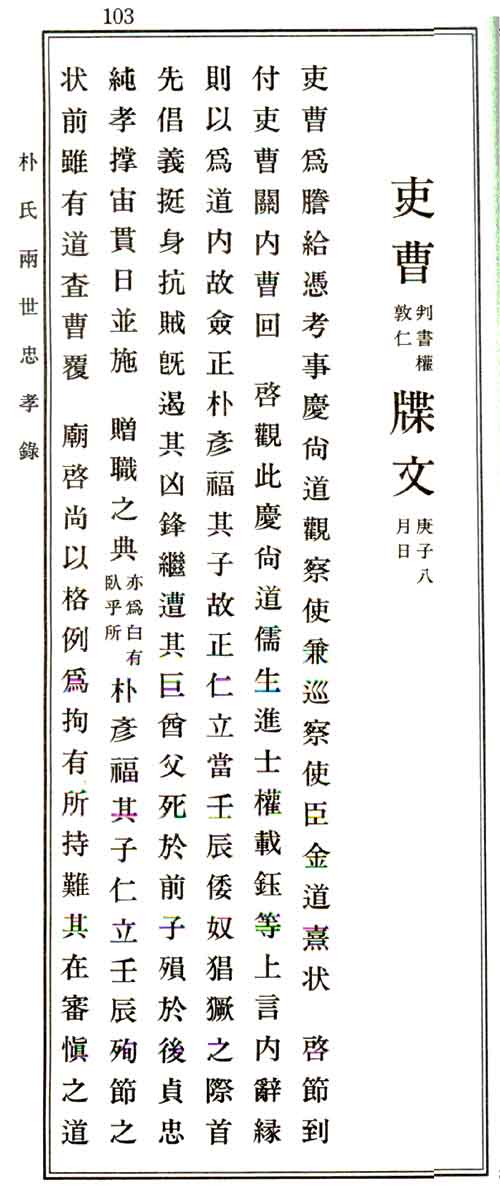 103
吏曹 判書權敦仁 牒文 庚子八月日
吏曹爲謄給憑考事慶尙道觀察使兼巡察使臣金道熹状 啓節到
付吏曹關内曹回 啓觀此慶尙道儒生進士權載鈺等上言内辭緣
則以爲道内故僉正朴彥福其子故正仁立當壬辰倭奴猖獗之際首
先倡義挺身抗賊旣遏其凶鋒繼遭其巨酋父死於前子殞於後貞忠
純孝撑宙貫日並施 贈職之典 亦爲白有臥乎所 朴彥福其子仁立壬辰殉節之
状前雖有道査曹覆 廟啓尚以格例爲拘有所持難其在審愼之道
朴氏兩世忠孝錄